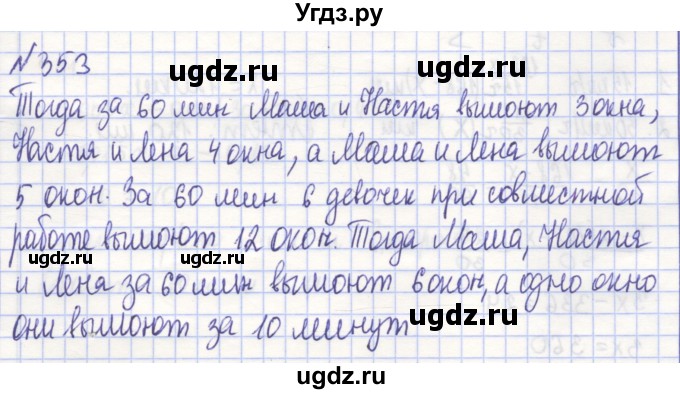 Угдз.ру
№353
ugdz.ru ugdz.ru
Тогда за 60 мин Маша и Настя вымоют 3 окна,
Настя и Лена 4 окна, а Маша и Лена вымоют
5 окон. За 60 мин 6 девочек при совместной
ugdz.ru ugdz.ru
работе вымоют 12 окон. Тогда Маша, Настя
и Лена за 60 мин вымоют 6 окон, а одно окно
они вымоют за 10 минут
ugdz.ru
ugdz.ru